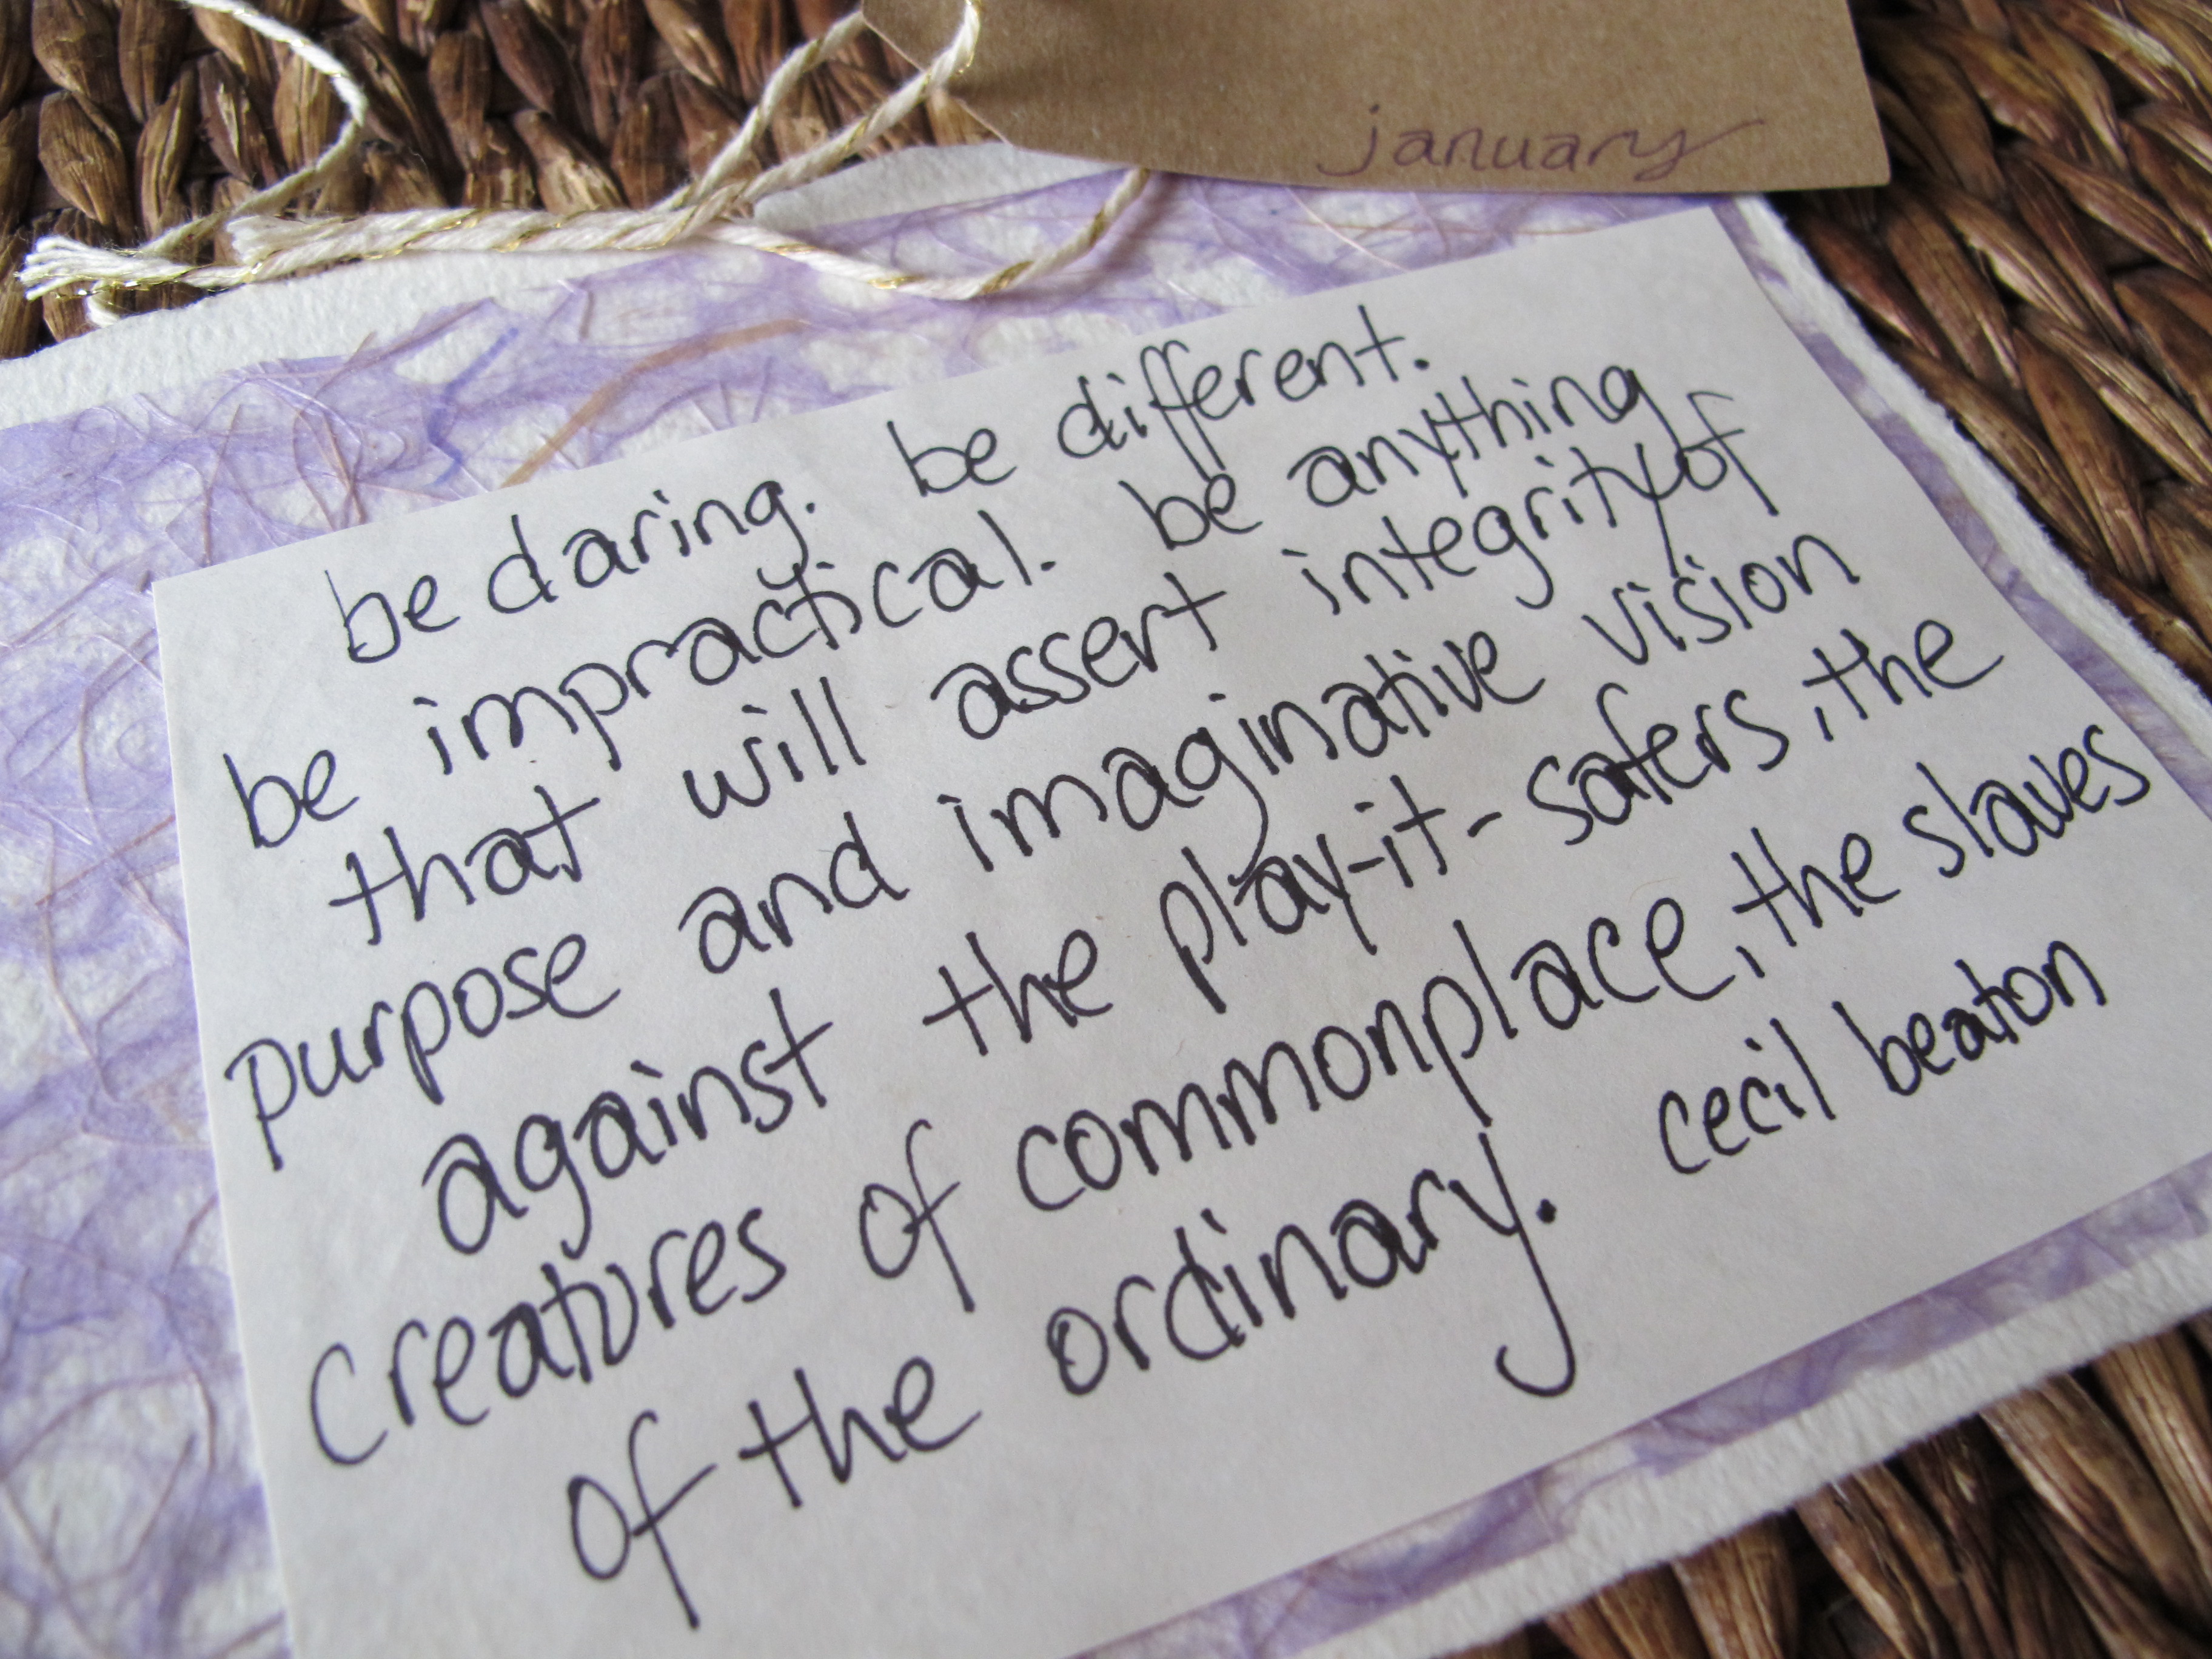 january
be daring. be different.
be impractical. be anything
that will assert integrity of
purpose and imaginative vision
against the play-it-safers, the
creatures of commonplace, the slaves
of the ordinary. cecil beaton